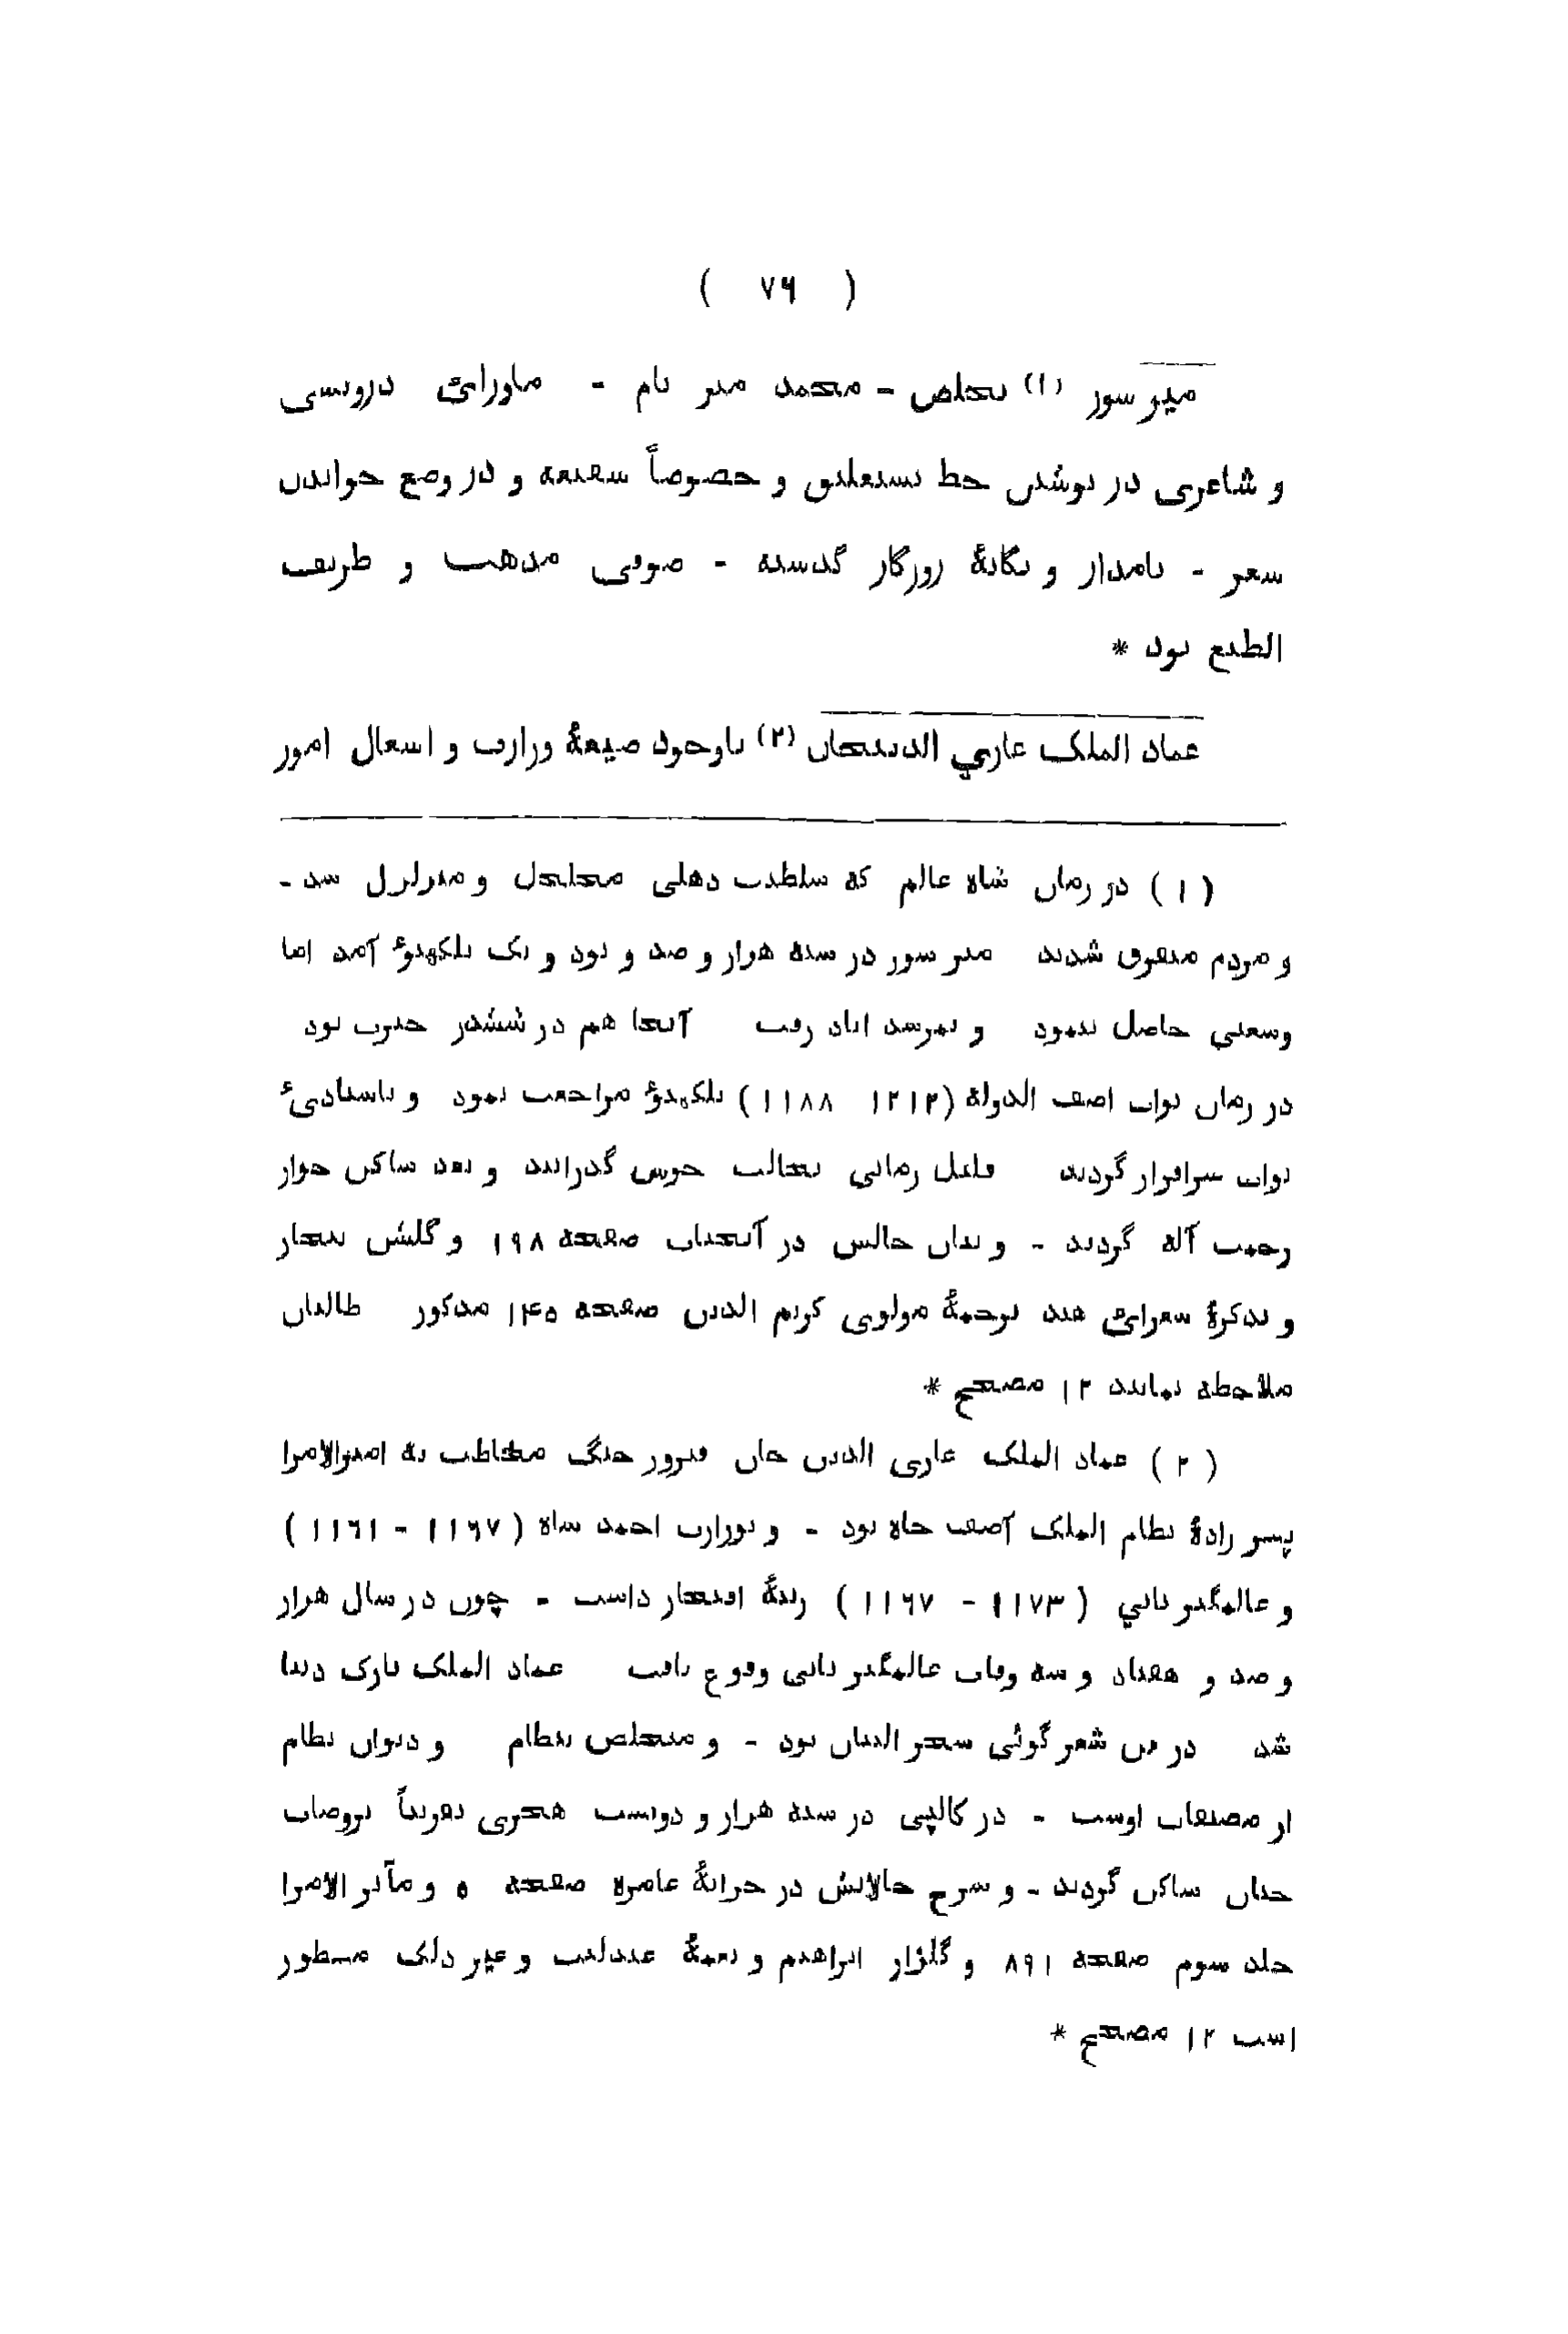 ( ۷۶ )
میر سوز (۱) تخلص - محمد میر نام - ماورای درویشی
و شاعری در نوشتن خط نستعلیق و خصوصاً شفیعه و در وضع خواندن
شعر - نامدار و یگانهٔ روزگار گذشته - صوفی مذهب و ظریف
الطبع بود *
عماد الملک غازي الدینخان (۲) باوجود صیغهٔ وزارت و اشغال امور
( ۱ ) در زمان شاه عالم که سلطنت دهلی متخلخل و متزلزل شد -
و مردم متفرق شدند میر سوز در سنه هزار و صد و نود و یک بلکهنوٴ آمد اما
وسعتي حاصل ننمود و بمرشد اباد رفت آنجا هم در ششدر حیرت بود
در زمان نواب اصف الدولة (۱۲۱۲ ۱۱۸۸) بلکهنوٴ مراجعت نمود و باستادیٴ
نواب سرافراز گردید قلیل زمانی بحالت خوش گذرانید و بعد ساکن جوار
رحمت آله گردید - و بیان حالش در آبحیات صفحه ۱۹۸ و گلشن بیخار
و تذکرهٔ شعرائ هند ترجمهٔ مولوی کریم الدین صفحه ۱۴۵ مذکور طالبان
ملاحظه نمایند ۱۲ مصحح *
( ۲ ) عماد الملک غازی الدین خان فیروز جنگ مخاطب به امیرالامرا
پسر زادهٔ نظام الملک آصف جاه بود - و بوزارت احمد شاه ( ۱۱۶۷ - ۱۱۶۱ )
و عالمگیر ثاني ( ۱۱۷۳ - ۱۱۶۷ ) رتبهٔ افتخار داشت - چون در سال هزار
و صد و هفتاد و سه وفات عالمگیر ثانی وقوع یافت عماد الملک تارک دنیا
شد در فن شعر گوئی سحر البیان بود - و متخلص بنظام و دیوان نظام
از مصنفات اوست - در کالپی در سنه هزار و دویست هجری تقریباً بروضات
جنان ساکن گردید - و شرح حالاتش در خزانهٔ عامره صفحه ۵ و مآثر الامرا
جلد سوم صفحه ۸۹۱ و گلزار ابراهیم و نغمهٔ عندلیب و غیر ذلک مسطور
است ۱۲ مصحح *